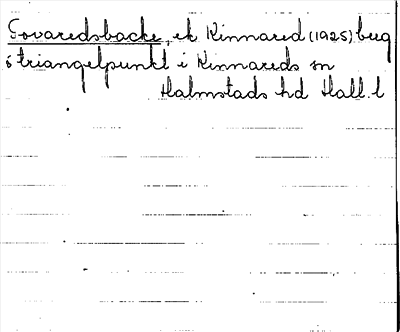 Govaredsbacke, ek Kinnared (1925) berg
o triangelpunkt i Kinnareds sn
Halmstads hd Hall. l